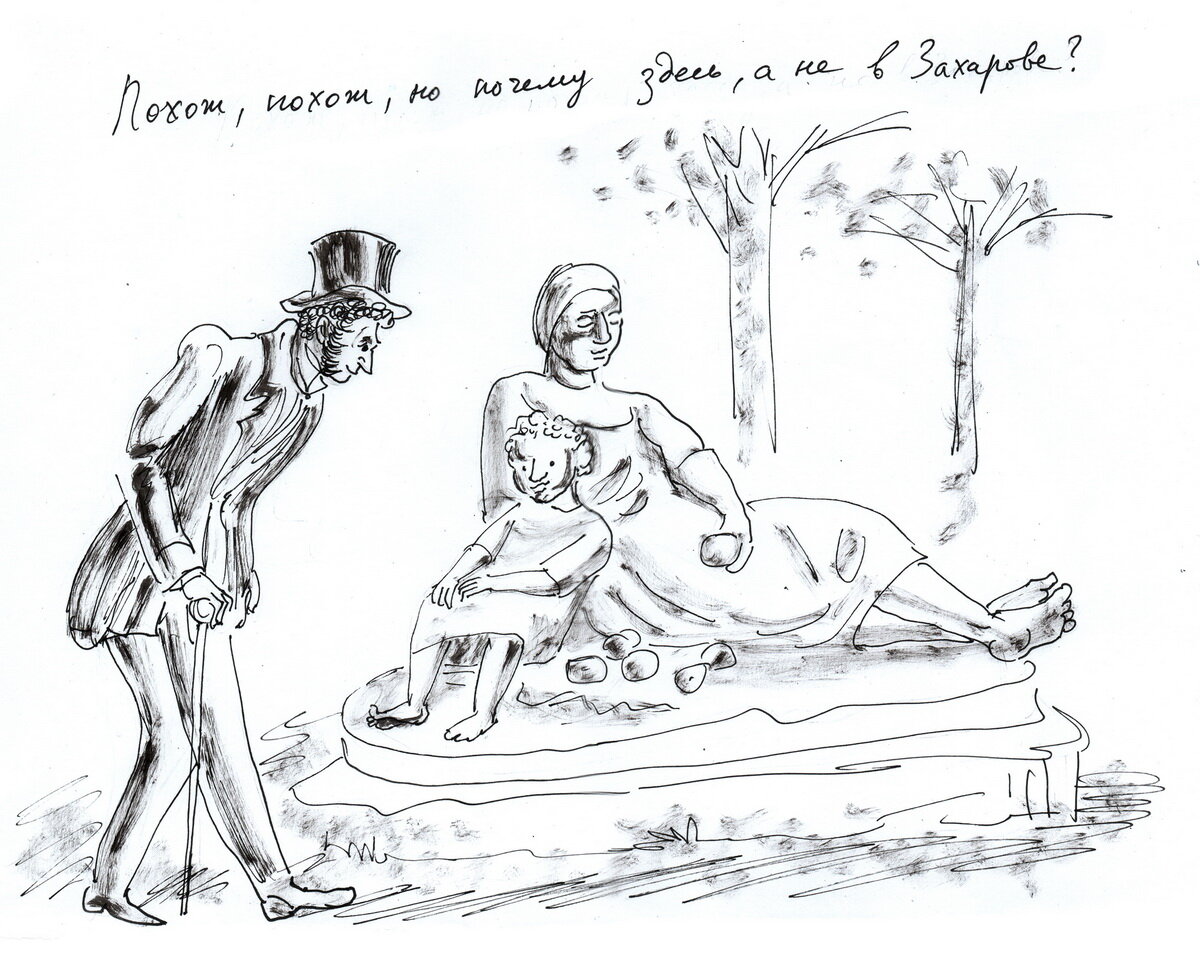 Похож, похож, но почему здесь, а не в Захарове?